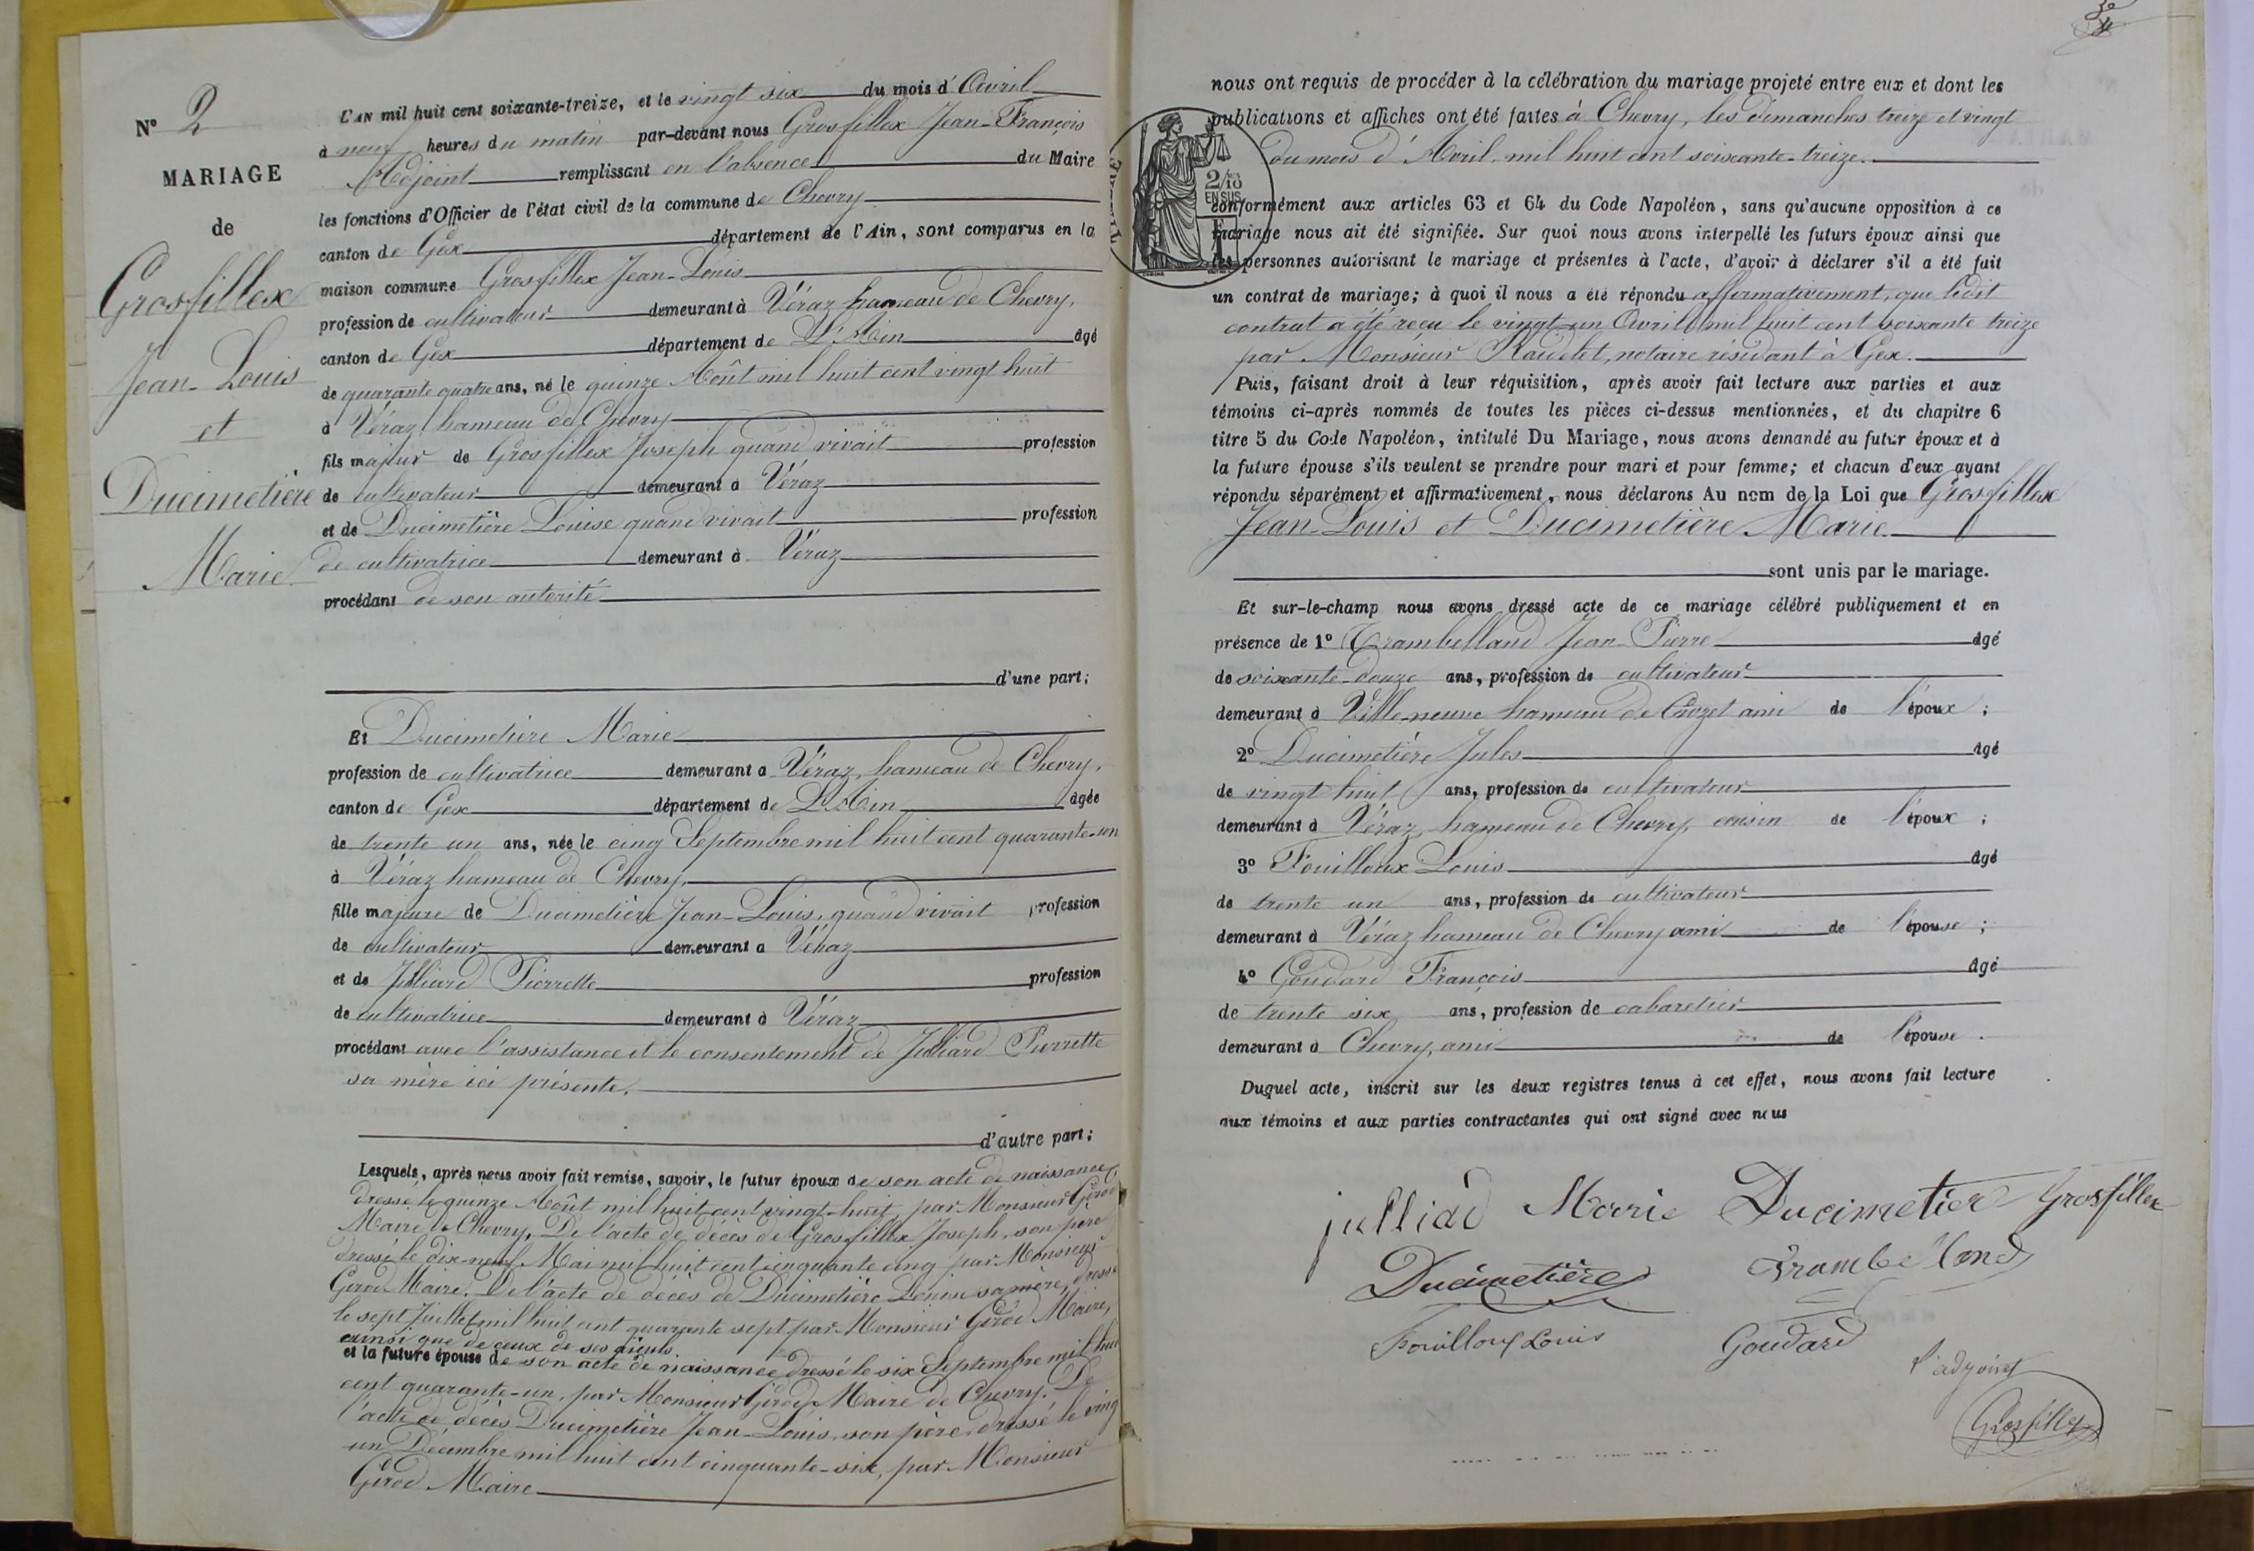 N° 2
MARIAGE
de
Grosfillex
Jean-Louis
et
Ducimetière
Marie
L'AN mil huit cent soixante-treize, et le vingt six du mois d'Avril
à neuf heures du matin par-devant nous Grosfillex Jean-François
Adjoint remplissant en l'absence du Maire
les fonctions d'Officier de l'état civil de la commune de Chevry
canton de Gex département de l'Ain, sont comparus en la
maison commune Grosfillex Jean-Louis
profession de cultivateur demeurant à Véraz hameau de Chevry,
canton de Gex département de L'Ain âgé
de quarante quatre ans, né le quinze Août mil huit cent vingt huit
à Véraz hameau de Chevry
fils majeur de Grosfillex Joseph quand vivait profession
de cultivateur demeurant à Véraz
et de Ducimetière Louise quand vivait profession
de cultivatrice demeurant à Véraz
procédant de son autorité
d'une part;
Et Ducimetière Marie
profession de cultivatrice demeurant à Véraz, hameau de Chevry,
canton de Gex département de L'Ain âgée
de trente un ans, née le cinq Septembre mil huit cent quarante-un
à Véraz hameau de Chevry,
fille majeure de Ducimetière Jean-Louis, quand vivait profession
de cultivateur demeurant à Véraz
et de Julliard Pierrette profession
de cultivatrice demeurant à Véraz
procédant avec l'assistance et le consentement de Julliard Pierrette
sa mère ici présente.
d'autre part;
Lesquels, après nous avoir fait remise, savoir, le futur époux de son acte de naissance,
dressé le quinze Août mil huit cent vingt-huit, par Monsieur Girod
Maire de Chevry, De l'acte de décès de Grosfillex Joseph, son père
dressé le dix-neuf Mai mil huit cent cinquante cinq par Monsieur
Girod Maire. De l'acte de décès de Ducimetière Louise sa mère, dressé
le sept Juillet mil huit cent quarante sept par Monsieur Girod Maire,
ainsi que de ceux de ses aïeuls
et la future épouse de son acte de naissance dressé le six Septembre mil huit
cent quarante-un, par Monsieur Girod Maire de Chevry. De
l'acte de décès Ducimetière Jean-Louis, son père, dressé le vingt
un Décembre mil huit cent cinquante-six, par Monsieur
Girod Maire
nous ont requis de procéder à la célébration du mariage projeté entre eux et dont les
publications et affiches ont été faites à Chevry, les dimanches treize et vingt
du mois d'Avril mil huit cent soixante-treize.
2/10
EN SUS
conformément aux articles 63 et 64 du Code Napoléon, sans qu'aucune opposition à ce
mariage nous ait été signifiée. Sur quoi nous avons interpellé les futurs époux ainsi que
les personnes autorisant le mariage et présentes à l'acte, d'avoir à déclarer s'il a été fait
un contrat de mariage; à quoi il nous a été répondu affirmativement, que ledit
contrat a été reçu le vingt-un Avril mil huit cent soixante treize
par Monsieur Roudet, notaire résidant à Gex.
Puis, faisant droit à leur réquisition, après avoir fait lecture aux parties et aux
témoins ci-après nommés de toutes les pièces ci-dessus mentionnées, et du chapitre 6
titre 5 du Code Napoléon, intitulé Du Mariage, nous avons demandé au futur époux et à
la future épouse s'ils veulent se prendre pour mari et pour femme; et chacun d'eux ayant
répondu séparément et affirmativement, nous déclarons Au nom de la Loi que Grosfillex
Jean-Louis et Ducimetière Marie
sont unis par le mariage.
Et sur-le-champ nous avons dressé acte de ce mariage célébré publiquement et en
présence de 1° Crambelland Jean-Pierre âgé
de soixante-douze ans, profession de cultivateur
demeurant à Villeneuve hameau de Crozet ami de l'époux;
2° Ducimetière Jules âgé
de vingt huit ans, profession de cultivateur
demeurant à Véraz, hameau de Chevry, cousin de l'époux;
3° Fouilloux Louis âgé
de trente un ans, profession de cultivateur
demeurant à Véraz hameau de Chevry ami de l'épouse;
4° Goudard François âgé
de trente six ans, profession de cabaretier
demeurant à Chevry, ami de l'épouse.
Duquel acte, inscrit sur les deux registres tenus à cet effet, nous avons fait lecture
aux témoins et aux parties contractantes qui ont signé avec nous
julliad Marie Ducimetier Grosfillex
Ducimetière
Fouilloux Louis Goudard
l'adjoint
Grosfillex